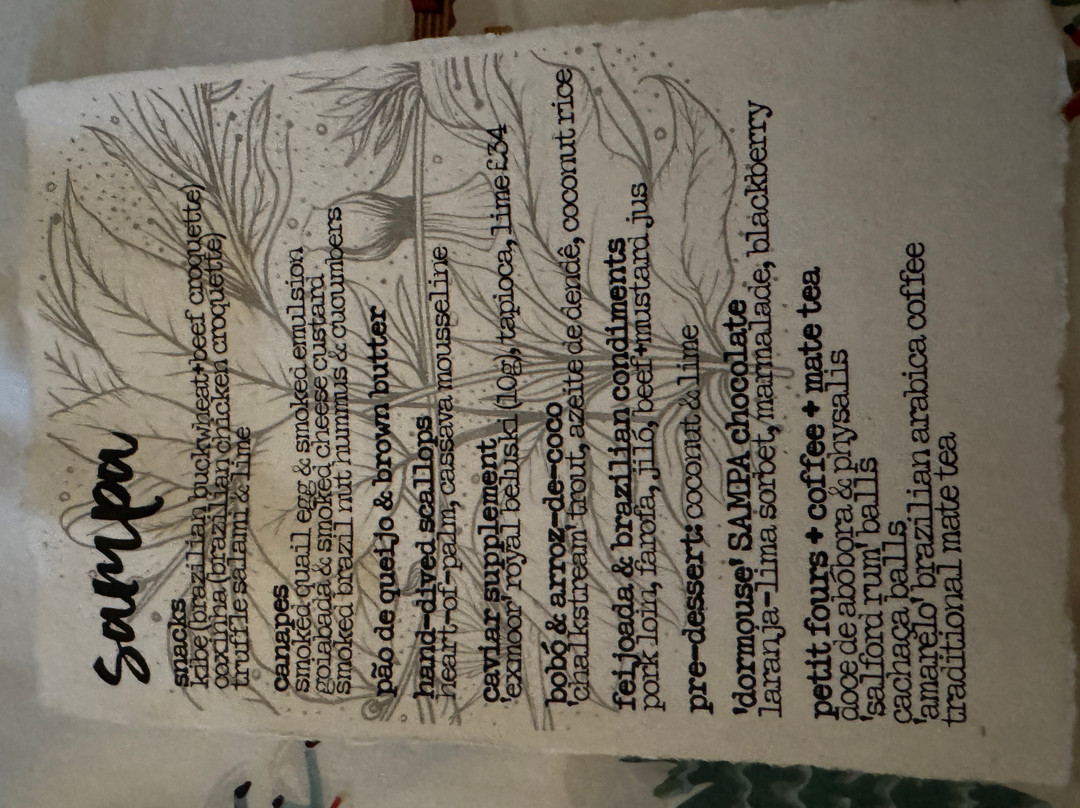 sampa
snacks
kibe (brazilian buckwheat+beef croquette)
coxinha (brazilian chicken croquette)
truffle salami & lime
canapes
smoked quail egg & smoked emulsion
goiabada & smoked cheese custard
smoked brazil nut hummus & cucumbers
pão de queijo & brown butter
hand-dived scallops
heart-of-palm, cassava mousseline
caviar supplement
'exmoor' royal beluski (10g), tapioca, lime £34
bobó & arroz-de-coco
'chalkstream' trout, azeite de dendê, coconut rice
feijoada & brazilian condiments
pork loin, farofa, jiló, beef+mustard jus
pre-dessert: coconut & lime
'dormouse' SAMPA chocolate
laranja-lima sorbet, marmalade, blackberry
petit fours + coffee + mate tea
doce de abóbora & physalis
'salford rum' balls
cachaça balls
'amarelo' brazilian arabica coffee
traditional mate tea